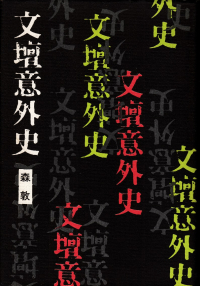 文壇意外史
森敦
文壇意外史
文壇意外史
文壇意外史
文壇意
外史